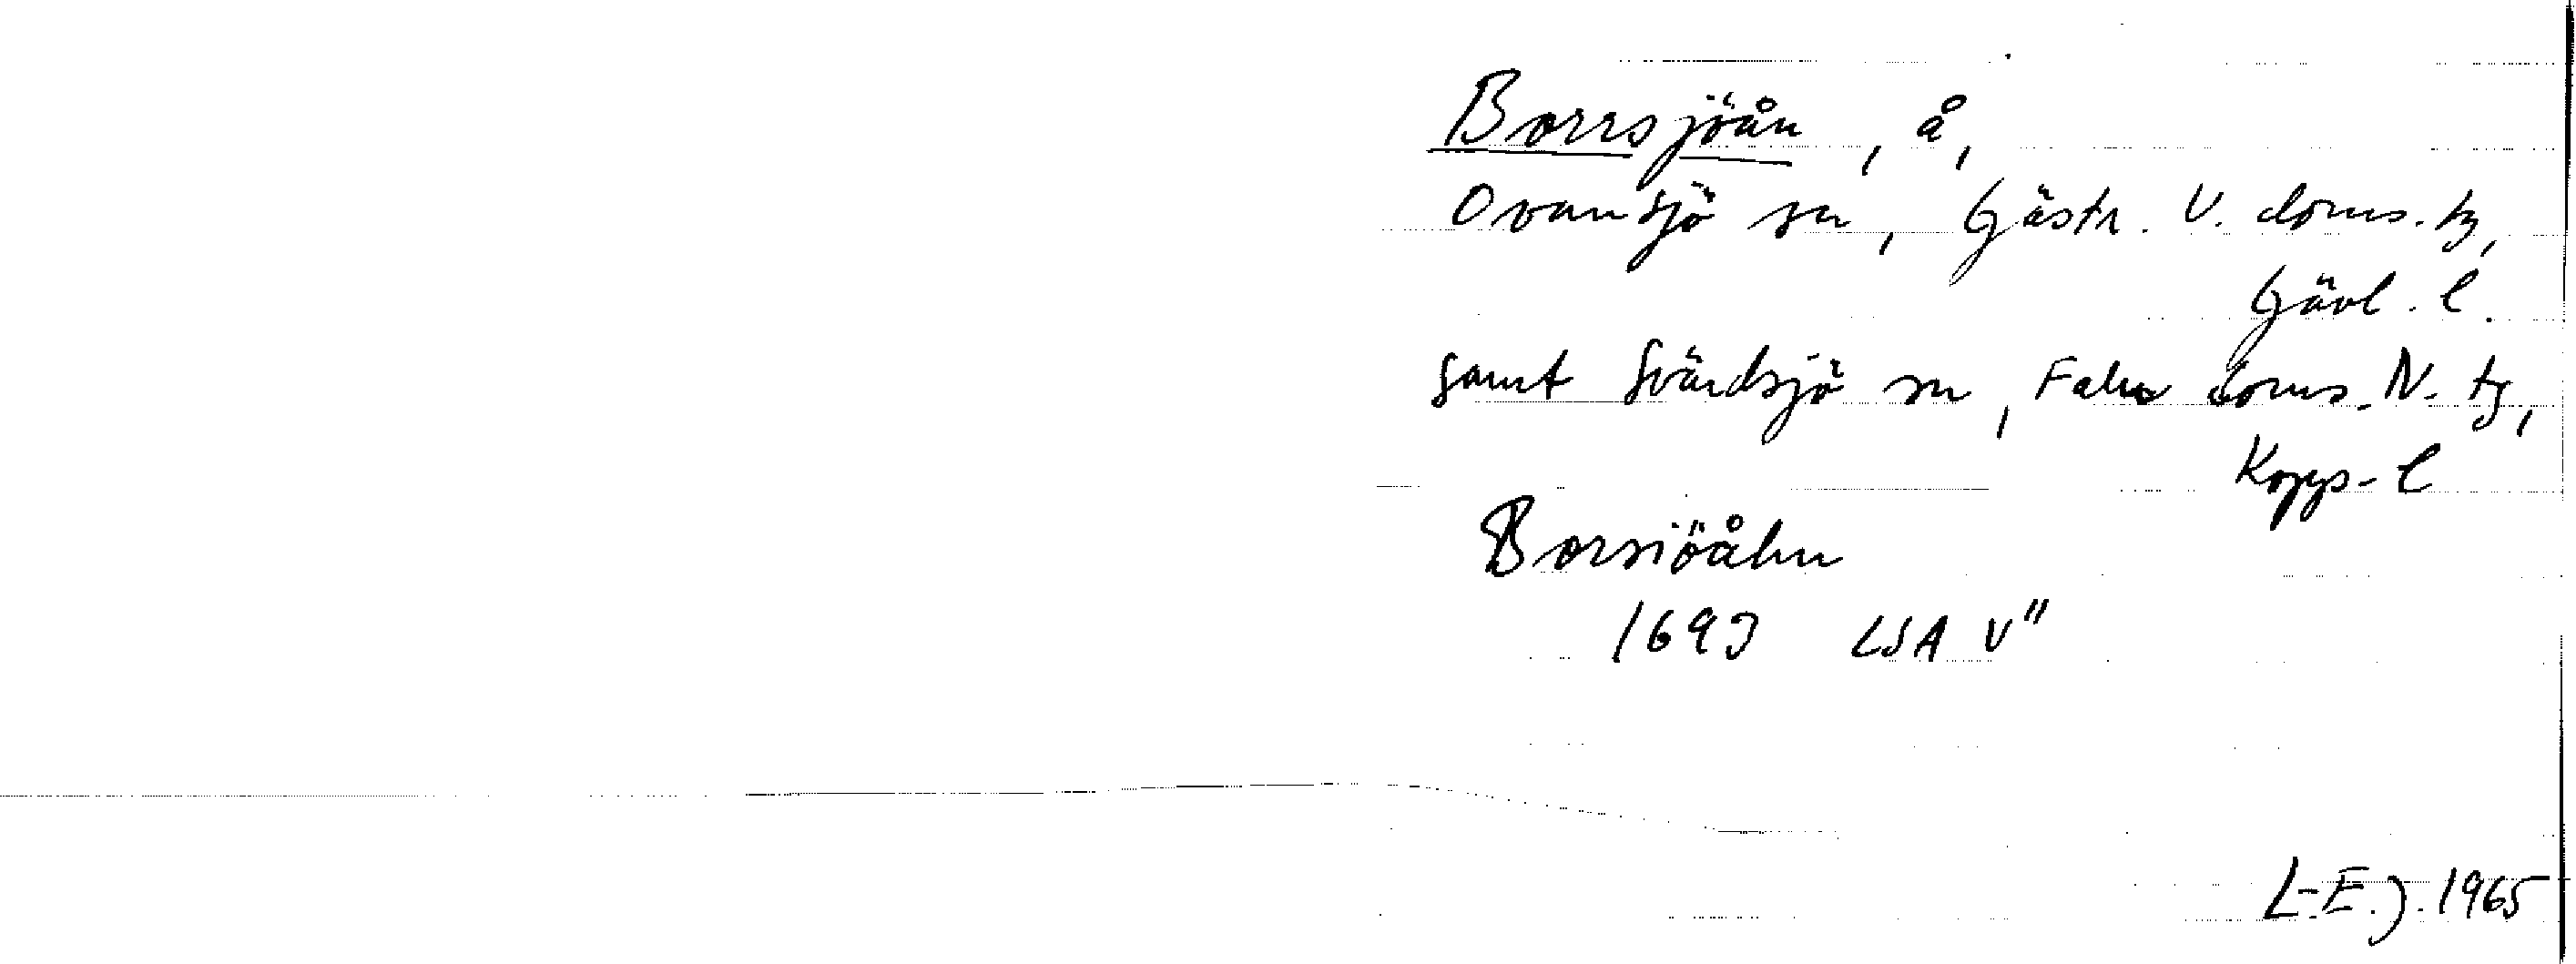 Borrsjöån, å,
Ovansjö sn, Gästr. V. doms. tg,
Gävl. l.
samt Svärdsjö sn, Falu doms. N. tg,
Kopp. l
Borsiöåhn
1693 LSA V"
L-E. J. 1965